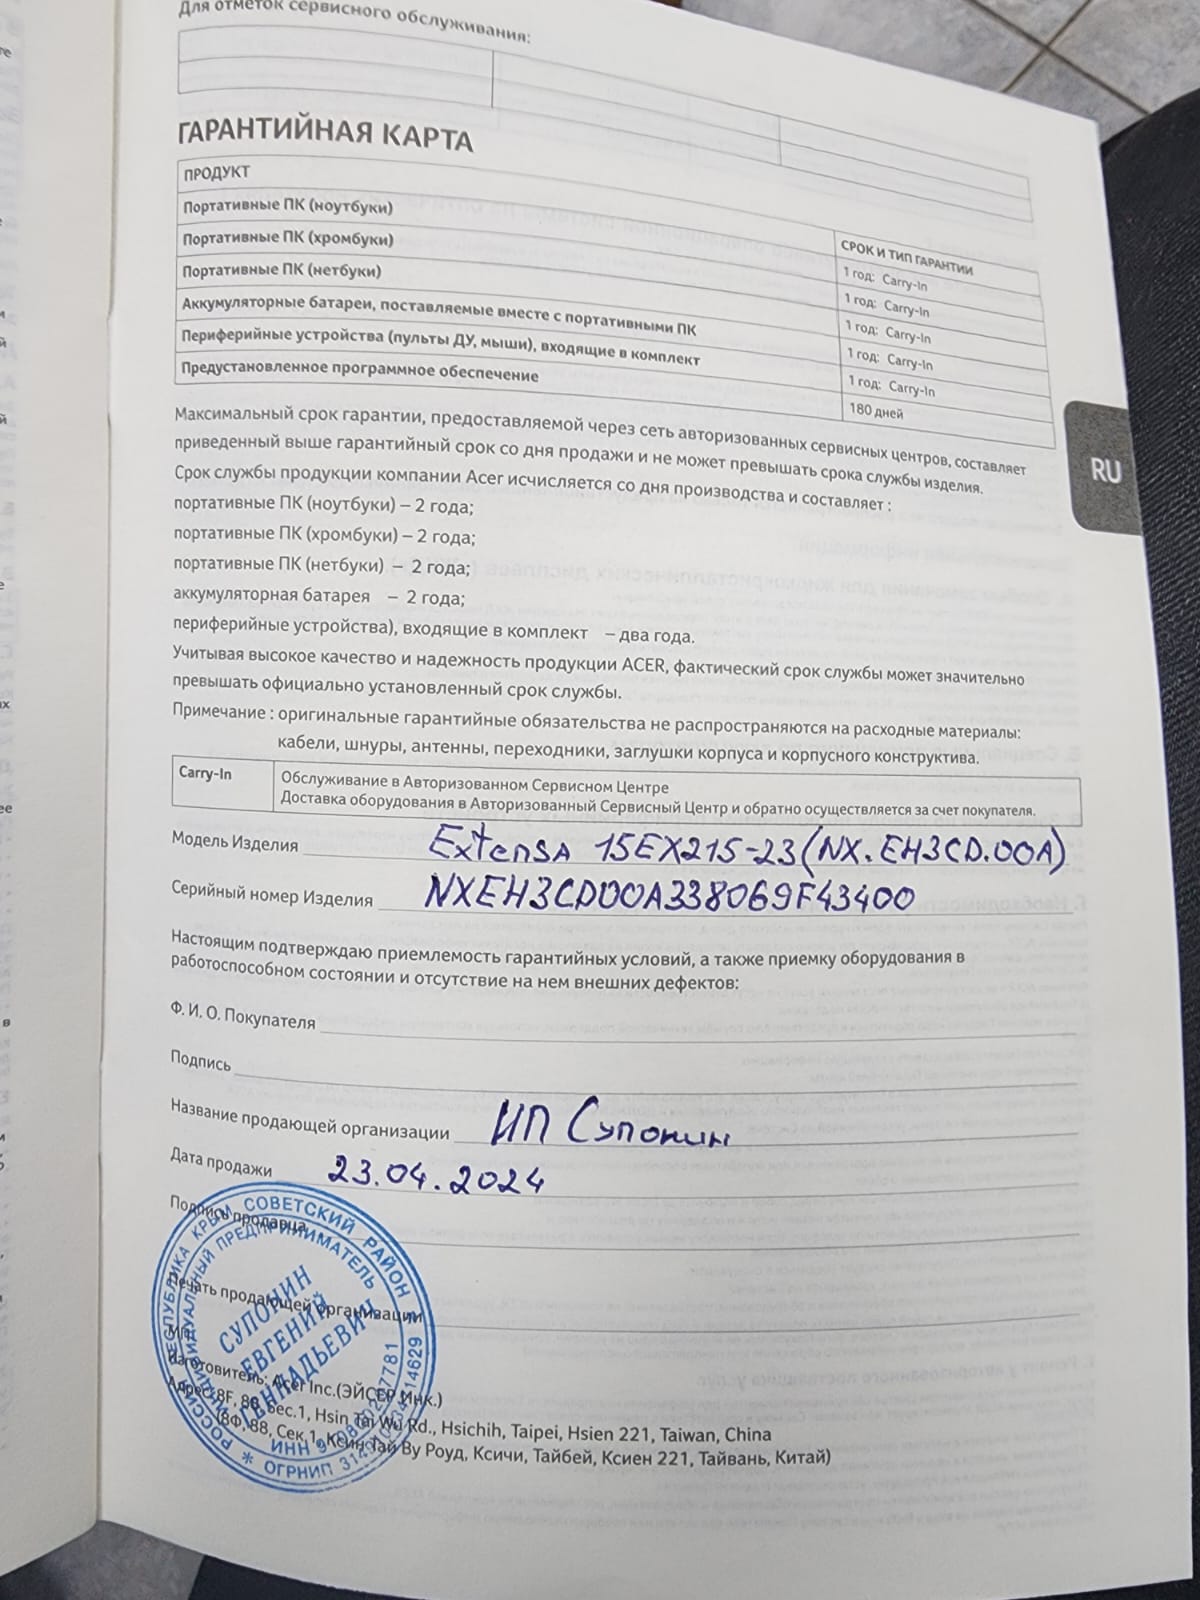 Для отметок сервисного обслуживания:
ГАРАНТИЙНАЯ КАРТА
ПРОДУКТ
СРОК И ТИП ГАРАНТИИ
Портативные ПК (ноутбуки)
1 год: Carry-In
Портативные ПК (хромбуки)
1 год: Carry-In
Портативные ПК (нетбуки)
1 год: Carry-In
Аккумуляторные батареи, поставляемые вместе с портативными ПК
1 год: Carry-In
Периферийные устройства (пульты ДУ, мыши), входящие в комплект
1 год: Carry-In
Предустановленное программное обеспечение
180 дней
RU
Максимальный срок гарантии, предоставляемой через сеть авторизованных сервисных центров, составляет
приведенный выше гарантийный срок со дня продажи и не может превышать срока службы изделия.
Срок службы продукции компании Acer исчисляется со дня производства и составляет :
портативные ПК (ноутбуки) – 2 года;
портативные ПК (хромбуки) – 2 года;
портативные ПК (нетбуки) – 2 года;
аккумуляторная батарея – 2 года;
периферийные устройства), входящие в комплект – два года.
Учитывая высокое качество и надежность продукции ACER, фактический срок службы может значительно
превышать официально установленный срок службы.
Примечание : оригинальные гарантийные обязательства не распространяются на расходные материалы:
кабели, шнуры, антенны, переходники, заглушки корпуса и корпусного конструктива.
Carry-In
Обслуживание в Авторизованном Сервисном Центре
Доставка оборудования в Авторизованный Сервисный Центр и обратно осуществляется за счет покупателя.
Модель Изделия Extensa 15EX215-23(NX.EH3CD.00A)
Серийный номер Изделия NXEH3CD00A338069F43400
Настоящим подтверждаю приемлемость гарантийных условий, а также приемку оборудования в
работоспособном состоянии и отсутствие на нем внешних дефектов:
Ф. И. О. Покупателя
Подпись
Название продающей организации ИП Супонин
Дата продажи 23.04.2024
Подпись продавца
Печать продающей организации
МП
Изготовитель: Acer Inc.(ЭЙСЕР Инк.)
Адрес: 8F, 88, Sec.1, Hsin Tai Wu Rd., Hsichih, Taipei, Hsien 221, Taiwan, China
(8Ф, 88, Сек.1, Ксин Тай Ву Роуд, Ксичи, Тайбей, Ксиен 221, Тайвань, Китай)
РОССИЯ РЕСПУБЛИКА КРЫМ СОВЕТСКИЙ РАЙОН
ИНДИВИДУАЛЬНЫЙ ПРЕДПРИНИМАТЕЛЬ
СУПОНИН
ЕВГЕНИЙ
ГЕННАДЬЕВИЧ
ИНН
ОГРНИП